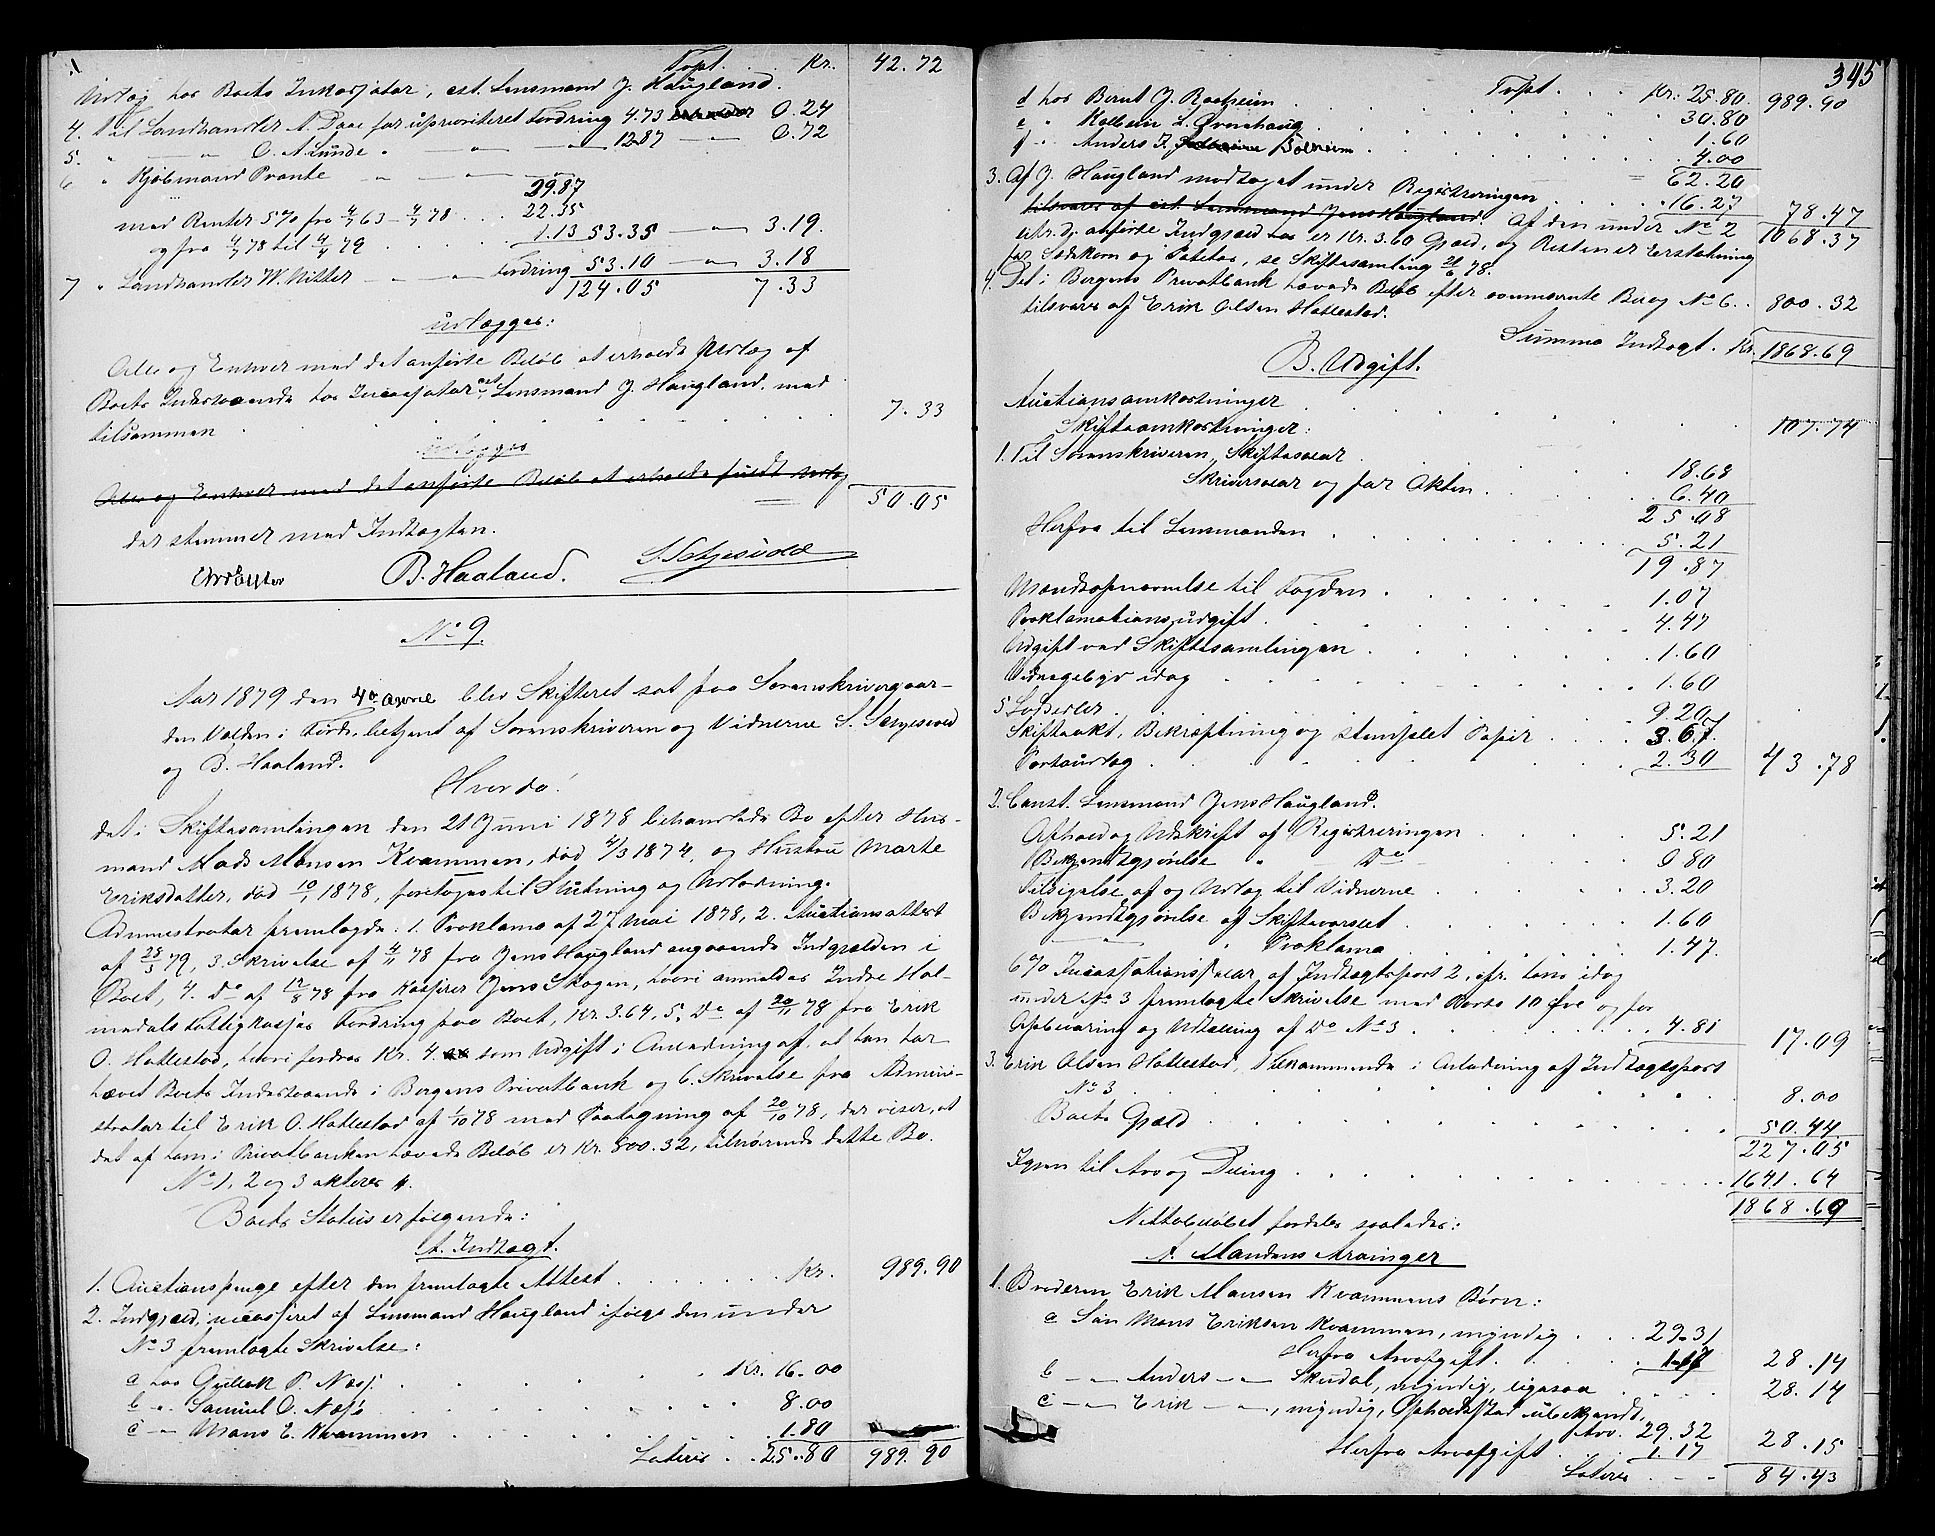 Topt. . . Kr. 42.72
Udlæg hos Boets Inkassator, cst. Lensmand J. Haugland.
4. Til Landhandler A. Daae for uprioriteret Fordring 4.73 0.24
5. " — " — O. A. Lunde " — " — 12.87 — " — 0.72
6 " Kjøbmand Prante — " — " — 29.87
med Renter 5% fra 4/7 63 – 4/7 78 . . . 22.35
og fra 4/7 78 til 4/4 79 . . . 1.13 53.35 — " — 3.19.
7 " Landhandler W. Witter — " — Fordring 53.10 — " — 3.18
124.05 7.33
udlægges:
Alle og Enhver med det anførte Beløb at erholde Udlæg af
Boets Indestaaende hos Incassator cst. Lensmand J. Haugland. med
tilsammen . . . 7.33
udlægges
Alle og Enhver med det anførte Beløb at erholde fuldt Udlæg
50.05
der stemmer med Indtægten.
B. Haaland. S. Setjesvold
No 9.
Aar 1879 den 4de April blev Skifteret sat paa Sorenskrivergaar-
den Volden i Førde, betjent af Sorenskriveren og Vidnerne S. Setjesvold
og B. Haaland.
Hvorda!
det i Skiftesamlingen den 21 Juni 1878 behandlede Bo efter Hus-
mand Mads Monsen Kvammen, død 4/3 1874, og Hustru Marte
Eriksdatter, død 10/1 1878, foretoges til Slutning og Udlodning.
Administrator fremlagde: 1. Proklama af 27 Mai 1878, 2. Auctionsattest
af 28/3 79, 3. Skrivelse af 4/11 78 fra Jens Haugland angaaende Indgjælden i
Boet, 4. Do af 17/8 78 fra Kasserer Jens Skogen, hvori anmeldes Indre Hol-
medals Fattigkasses Fordring paa Boet, Kr. 3.64, 5. Do af 20/11 78 fra Erik
O. Hatlestad, hvori fordres Kr. 4. som Udgift i Anledning af, at han har
hævet Boets Indestaaende i Bergens Privatbank og 6. Skrivelse fra Admini-
strator til Erik O. Hatlestad af 1/10 78 med Paategning af 20/10 78, der viser, at
det af ham i Privatbanken hævede Beløb er Kr. 800.32, tilhørende dette Bo.
No 1, 2 og 3 akteres.
Boets Status er følgende:
A. Indtægt.
1. Auctionspenge efter den fremlagte Attest . . . . . . . Kr. 989.90
2. Indgjæld, incasseret af Lensmand Haugland ifølge den under
No 3 fremlagte Skrivelse:
a hos Gullak P. Næss. . . . . . Kr. 16.00
b " Samuel O. Næss . . . . . . 8.00
c " Mons E. Kvammen . . . . . . 1.80
Lateris . . 25.80 989.90
345
Topt . . . Kr. 25.80. 989.90
d hos Bernt J. Roeheim . . . . . 30.80
e " Kolbein L. Øvrehaug . . . . . 1.60
f " Anders J. Solheim . . . . . 4.00
62.20
3. Af J. Haugland modtaget under Registreringen . . . 16.27 78.47
tilsvares af cst. Lensmand Jens Haugland. Af den under No 2 1068.37
anførte Indgjæld er Kr. 3.60 Gjæld, og Resten er Erstatning
for Sædekorn og Poteter, se Skiftesamling 21/6 78.
4. Det i Bergens Privatbank hævede Beløb efter ovennævnte Bilag No 6. . 800.32
tilsvares af Erik Olsen Hatlestad.
Summa Indtægt . Kr. 1868.69
B. Udgift.
Auctionsomkostninger . . . . . 107.74
Skifteomkostninger:
1. Til Sorenskriveren, Skiftesalær . . . . . 18.68
Skriversalær og for Akten . . . . 6.40
25.08
Herfra til Lensmanden . . . . . 5.21
19.87
Mændsopnævnelse til Fogden . . . . . 1.07
Proklamationsudgift . . . . . 4.47
Udgift ved Skiftesamlingen . . . . . 1.60
Vidnegebyr idag . . . . . 1.60
5 Lodsedler . . . . . 9.20
Skifteakt, Bekræftning og stemplet Papir . . . . 3.67
Portoudlæg . . . . . 2.30 43.78
2. Const. Lensmand Jens Haugland.
Afhold og Udskrift af Registreringen . . . . . 5.21
Bekjendtgjørelse " — Do — 0.80
Tilsigelse af og Udlæg til Vidnerne . . . . . 3.20
Bekjendtgjørelse af Skiftevarslet . . . . . 1.60
— " — " Proklama . . . . . 1.47.
6% Incassationssalær af Indtægtspost 2, cfr. hans idag
under No 3 fremlagte Skrivelse med Porto 10 Øre og for
Opbevaring og Udtælling af Do No 3 . . . . . 4.81 17.09
3. Erik Olsen Hatlestad, Tilkommende i Anledning af Indtægtspost
No 3 . . . . . 8.00
Boets Gjæld . . . . . 50.44
227.05
Igjen til Arv og Deling . . . . . 1641.64
1868.69
Nettobeløbet fordeles saaledes:
A. Mandens Arvinger
1. Broderen Erik Monsen Kvammens Børn:
a Søn Mons Eriksen Kvammen, myndig . . . 29.31
Herfra Arveafgift . . . . 1.17 28.14
b — " — Anders — " — Skudal, myndig, ligesaa . . . . 28.14
c — " — Erik — " —, myndig, Opholdsstad ubekjendt,
Arv. 29.32
Herfra Arveafgift . . . 1.17 28.15
Lateris . . . 84.43